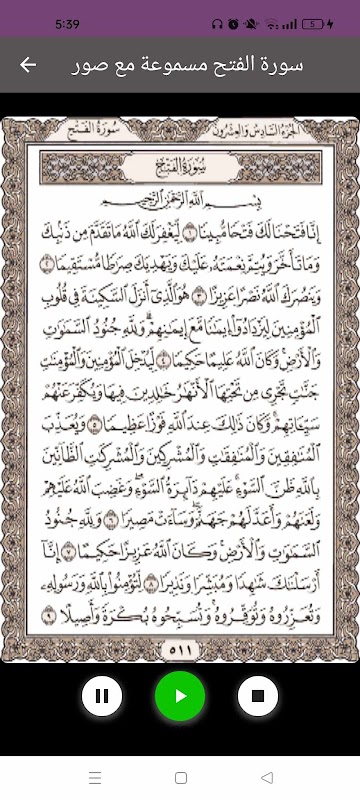 5:39
5
سورة الفتح مسموعة مع صور
سُورَةُ الفَتْحِ
الجُزْءُ السَّادِسُ وَالعِشْرُونَ
سُورَةُ الفَتْحِ
بِسْمِ اللَّهِ الرَّحْمَٰنِ الرَّحِيمِ
إِنَّا فَتَحْنَا لَكَ فَتْحًا مُّبِينًا ١ لِّيَغْفِرَ لَكَ اللَّهُ مَا تَقَدَّمَ مِن ذَنۢبِكَ
وَمَا تَأَخَّرَ وَيُتِمَّ نِعْمَتَهُۥ عَلَيْكَ وَيَهْدِيَكَ صِرَٰطًا مُّسْتَقِيمًا ٢
وَيَنصُرَكَ اللَّهُ نَصْرًا عَزِيزًا ٣ هُوَ الَّذِىٓ أَنزَلَ السَّكِينَةَ فِى قُلُوبِ
الْمُؤْمِنِينَ لِيَزْدَادُوٓا۟ إِيمَٰنًا مَّعَ إِيمَٰنِهِمْ وَلِلَّهِ جُنُودُ السَّمَٰوَٰتِ
وَالْأَرْضِ وَكَانَ اللَّهُ عَلِيمًا حَكِيمًا ٤ لِّيُدْخِلَ الْمُؤْمِنِينَ وَالْمُؤْمِنَٰتِ
جَنَّٰتٍ تَجْرِى مِن تَحْتِهَا الْأَنْهَٰرُ خَٰلِدِينَ فِيهَا وَيُكَفِّرَ عَنْهُمْ
سَيِّـَٔاتِهِمْ وَكَانَ ذَٰلِكَ عِندَ اللَّهِ فَوْزًا عَظِيمًا ٥ وَيُعَذِّبَ
الْمُنَٰفِقِينَ وَالْمُنَٰفِقَٰتِ وَالْمُشْرِكِينَ وَالْمُشْرِكَٰتِ الظَّآنِّينَ
بِاللَّهِ ظَنَّ السَّوْءِ عَلَيْهِمْ دَآئِرَةُ السَّوْءِ وَغَضِبَ اللَّهُ عَلَيْهِمْ
وَلَعَنَهُمْ وَأَعَدَّ لَهُمْ جَهَنَّمَ وَسَآءَتْ مَصِيرًا ٦ وَلِلَّهِ جُنُودُ
السَّمَٰوَٰتِ وَالْأَرْضِ وَكَانَ اللَّهُ عَزِيزًا حَكِيمًا ٧ إِنَّآ
أَرْسَلْنَٰكَ شَٰهِدًا وَمُبَشِّرًا وَنَذِيرًا ٨ لِّتُؤْمِنُوا۟ بِاللَّهِ وَرَسُولِهِۦ
وَتُعَزِّرُوهُ وَتُوَقِّرُوهُ وَتُسَبِّحُوهُ بُكْرَةً وَأَصِيلًا ٩
٥١١